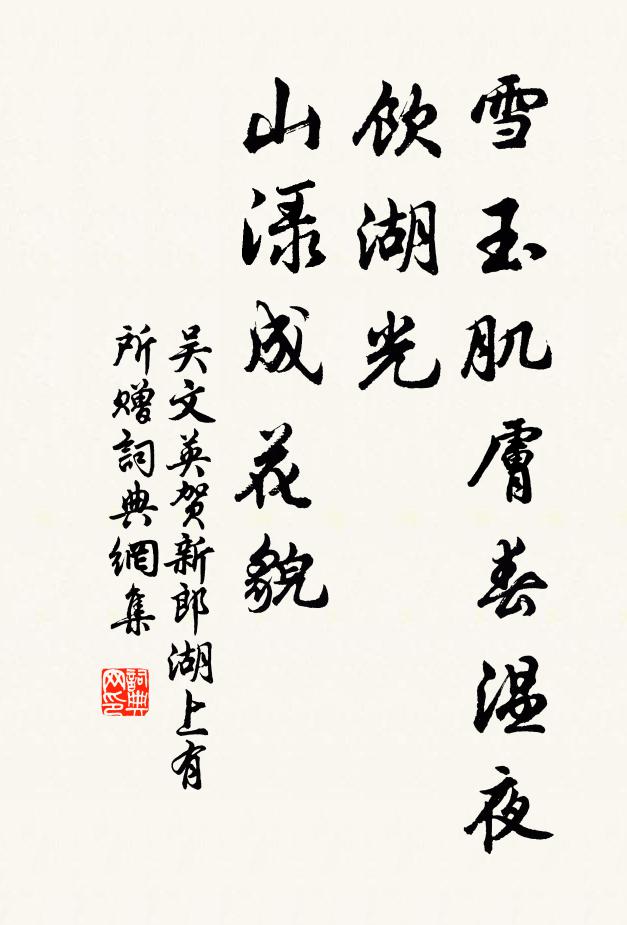 雪玉肌膚春溫夜
飲湖光
山淥成花貌
吴文英賀新郎湖上有
所贈詞典網集
詞典网印